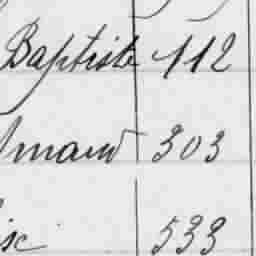 Baptiste 112
Amand 303
533